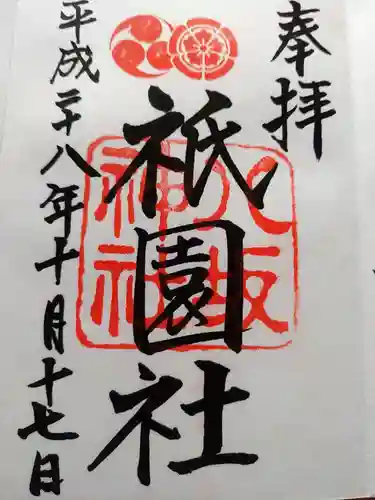 奉拝
八坂神社
祇園社
平成二十八年十月十七日